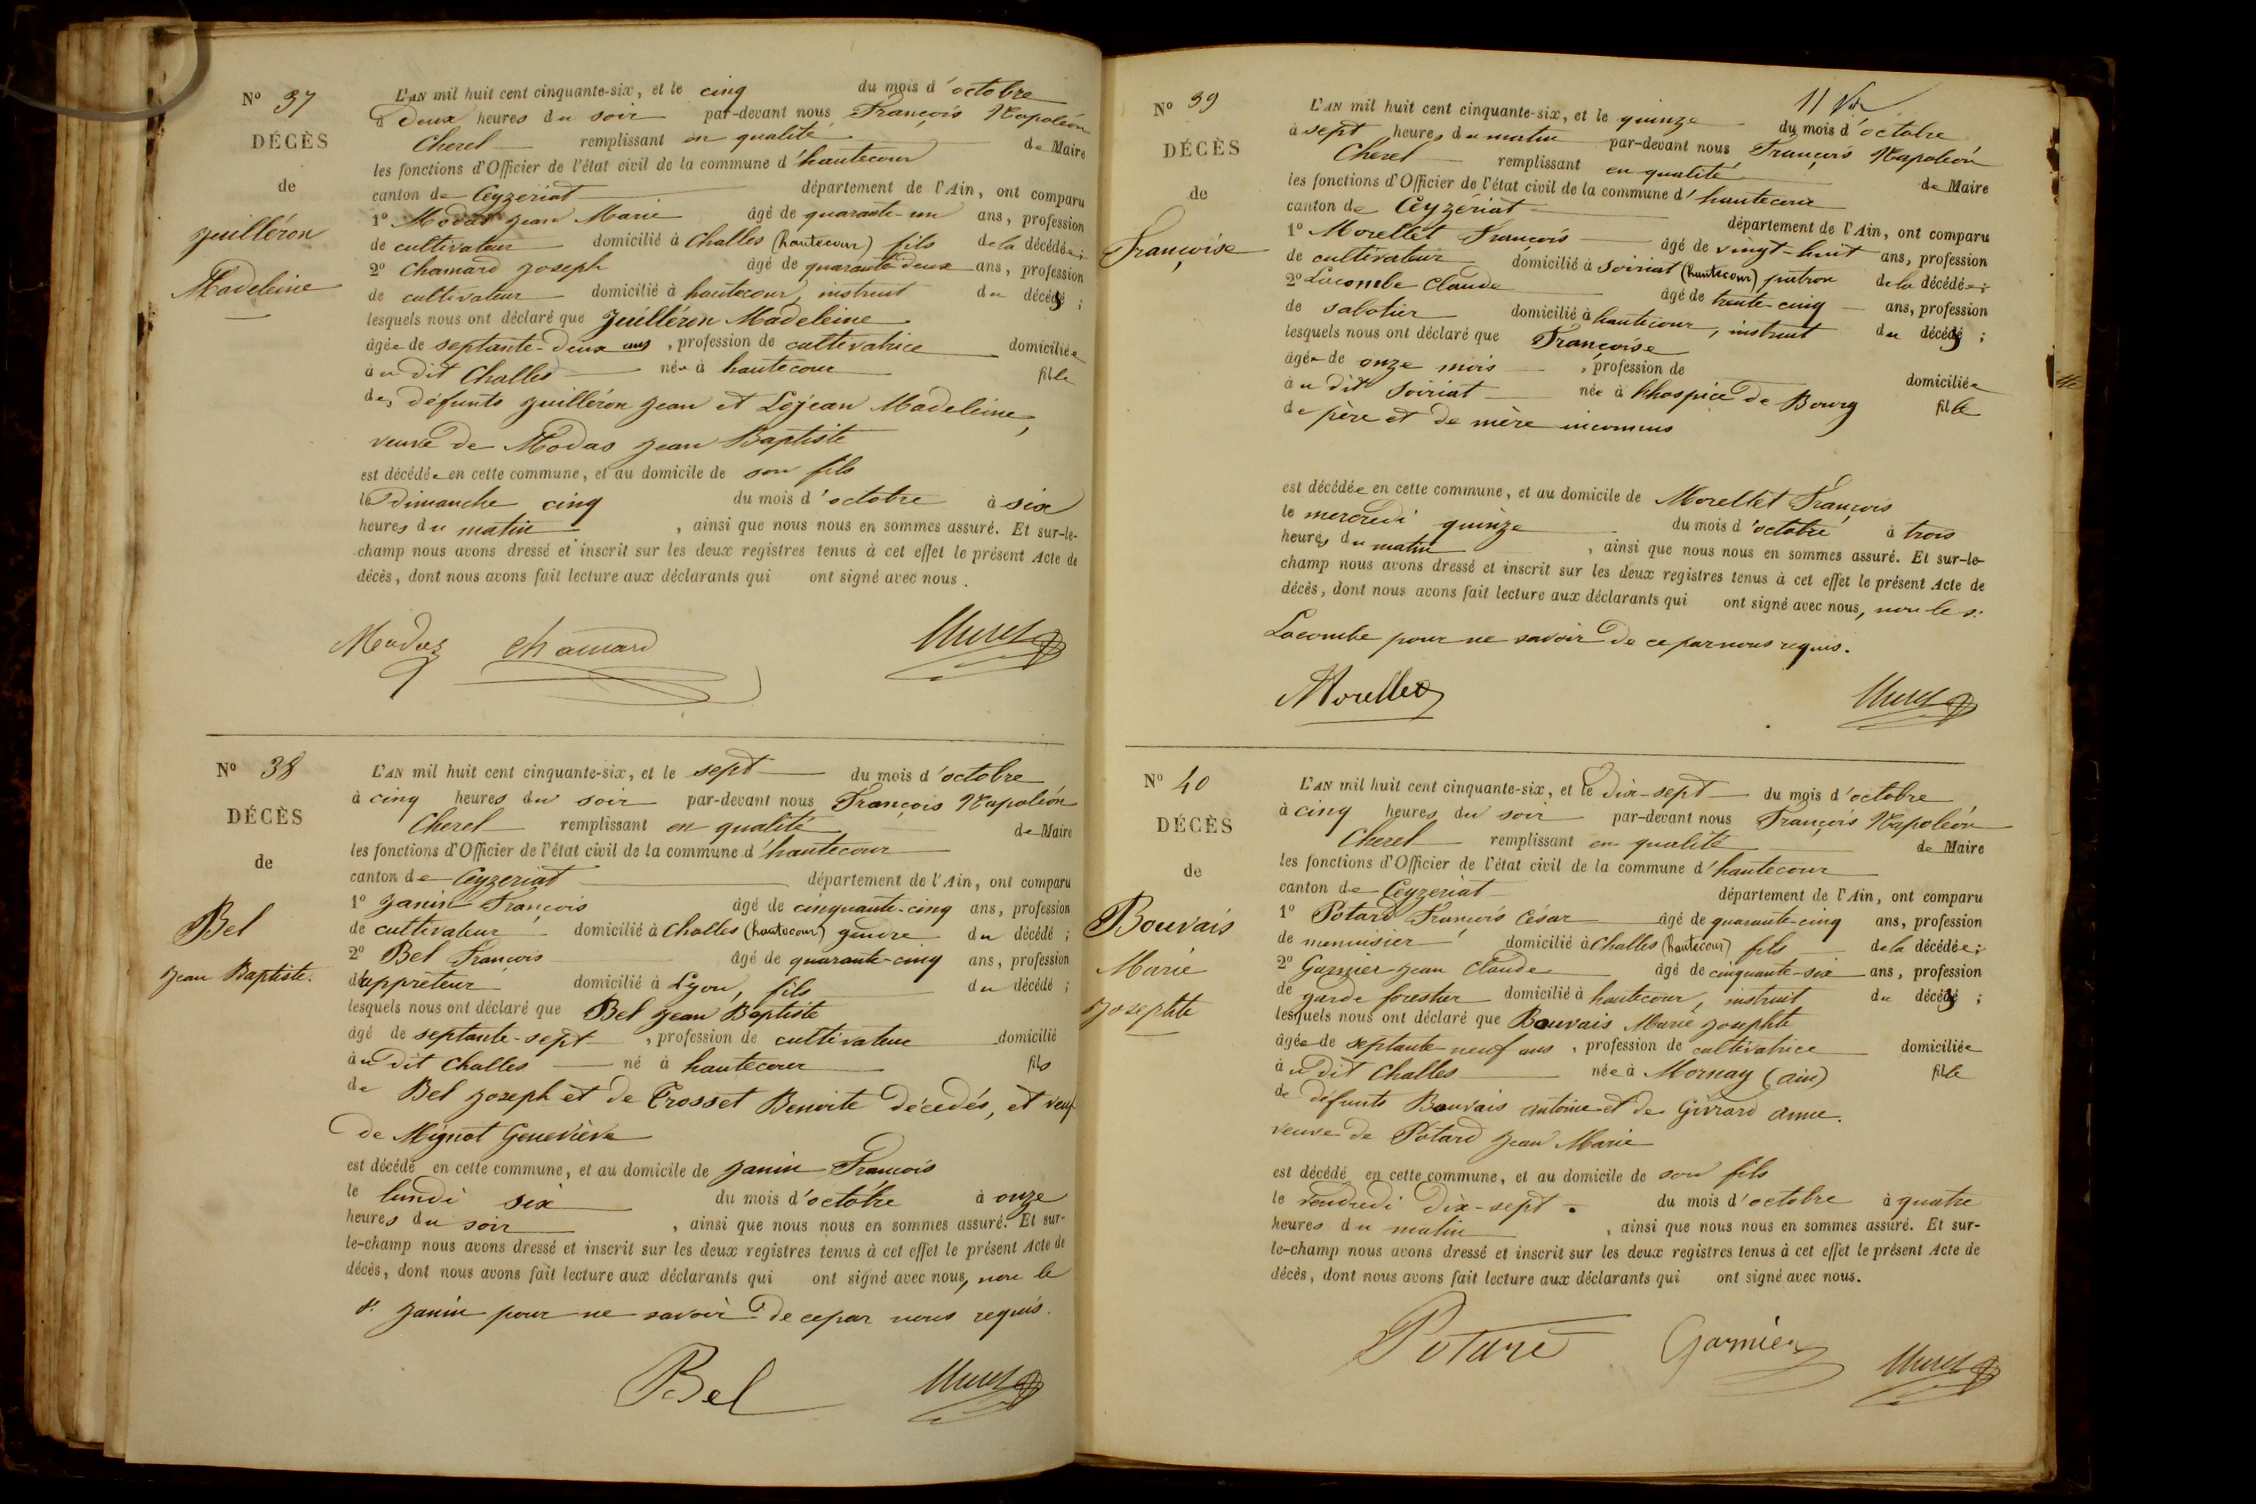 N° 37
DÉCÈS
de
Juilléron
Madeleine
L'AN mil huit cent cinquante-six, et le cinq du mois d'octobre
à deux heures du soir par-devant nous François Napoléon
Cherel remplissant en qualité de Maire
les fonctions d'Officier de l'état civil de la commune d'hautecour
canton de Ceyzeriat département de l'Ain, ont comparu
1° Modas Jean Marie âgé de quarante-un ans, profession
de cultivateur domicilié à Challes (hautecour) fils de la décédée;
2° Chamard Joseph âgé de quarante deux ans, profession
de cultivateur domicilié à hautecour, instruit du décès;
lesquels nous ont déclaré que Juilléron Madeleine
âgée de septante-deux ans, profession de cultivatrice domiciliée
à u dit Challes née à hautecour fille
des défunts Juilléron Jean et Lojean Madeleine,
veuve de Modas Jean Baptiste
est décédée en cette commune, et au domicile de son fils
le Dimanche cinq du mois d'octobre à six
heures du matin, ainsi que nous nous en sommes assuré. Et sur-le-
champ nous avons dressé et inscrit sur les deux registres tenus à cet effet le présent Acte de
décès, dont nous avons fait lecture aux déclarants qui ont signé avec nous.
Modas Chamard Cherel
N° 38
DÉCÈS
de
Bel
Jean Baptiste.
L'AN mil huit cent cinquante-six, et le sept du mois d'octobre
à cinq heures du soir par-devant nous François Napoléon
Cherel remplissant en qualité de Maire
les fonctions d'Officier de l'état civil de la commune d'hautecour
canton de Ceyzeriat département de l'Ain, ont comparu
1° Janin François âgé de cinquante-cinq ans, profession
de cultivateur domicilié à Challes (hautecour) gendre du décédé;
2° Bel François âgé de quarante-cinq ans, profession
d'apprêteur domicilié à Lyon, fils du décédé;
lesquels nous ont déclaré que Bel Jean Baptiste
âgé de septante-sept, profession de cultivateur domicilié
à u dit Challes né à hautecour fils
de Bel Joseph et de Trosset Benoite décédés, et veuf
de Mignot Geneviève
est décédé en cette commune, et au domicile de Janin François
le lundi six du mois d'octobre à onze
heures du soir, ainsi que nous nous en sommes assuré. Et sur-
le-champ nous avons dressé et inscrit sur les deux registres tenus à cet effet le présent Acte de
décès, dont nous avons fait lecture aux déclarants qui ont signé avec nous, non le
s. Janin pour ne savoir de ce par nous requis.
Bel Cherel
N° 39
DÉCÈS
de
Françoise
L'AN mil huit cent cinquante-six, et le quinze du mois d'octobre
à sept heures du matin par-devant nous François Napoléon
Cherel remplissant en qualité de Maire
les fonctions d'Officier de l'état civil de la commune d'hautecour
canton de Ceyzériat département de l'Ain, ont comparu
1° Morellet François âgé de vingt-huit ans, profession
de cultivateur domicilié à Soiriat (hautecour) patron de la décédée;
2° Lacombe Claude âgé de trente-cinq ans, profession
de sabotier domicilié à hautecour, instruit du décès;
lesquels nous ont déclaré que Françoise
âgée de onze mois, profession de domiciliée
à u dit Soiriat née à l'hospice de Bourg fille
de père et de mère inconnus
est décédée en cette commune, et au domicile de Morellet François
le mercredi quinze du mois d'octobre à trois
heures du matin, ainsi que nous nous en sommes assuré. Et sur-le-
champ nous avons dressé et inscrit sur les deux registres tenus à cet effet le présent Acte de
décès, dont nous avons fait lecture aux déclarants qui ont signé avec nous, non le s.
Lacombe pour ne savoir de ce par nous requis.
Morellet Cherel
N° 40
DÉCÈS
de
Bouvais
Marie
Josephte
L'AN mil huit cent cinquante-six, et le dix-sept du mois d'octobre
à cinq heures du soir par-devant nous François Napoléon
Cherel remplissant en qualité de Maire
les fonctions d'Officier de l'état civil de la commune d'hautecour
canton de Ceyzeriat département de l'Ain, ont comparu
1° Potard François César âgé de quarante-cinq ans, profession
de menuisier domicilié à Challes (hautecour) fils de la décédée;
2° Garnier Jean Claude âgé de cinquante-six ans, profession
de garde forestier domicilié à hautecour, instruit du décès;
lesquels nous ont déclaré que Bouvais Marie Josephte
âgée de septante-neuf ans, profession de cultivatrice domiciliée
à u dit Challes née à Mornay (ain) fille
de défunts Bouvais antoine et de Givrard anne.
veuve de Potard Jean Marie
est décédé en cette commune, et au domicile de son fils
le vendredi dix-sept du mois d'octobre à quatre
heures du matin, ainsi que nous nous en sommes assuré. Et sur-
le-champ nous avons dressé et inscrit sur les deux registres tenus à cet effet le présent Acte de
décès, dont nous avons fait lecture aux déclarants qui ont signé avec nous.
Potard Garnier Cherel